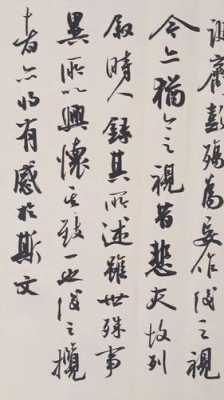 誕齊彭殤為妄作後之視
今亦猶今之視昔悲夫故列
敘時人錄其所述雖世殊事
異所以興懷其致一也後之攬
者亦將有感於斯文